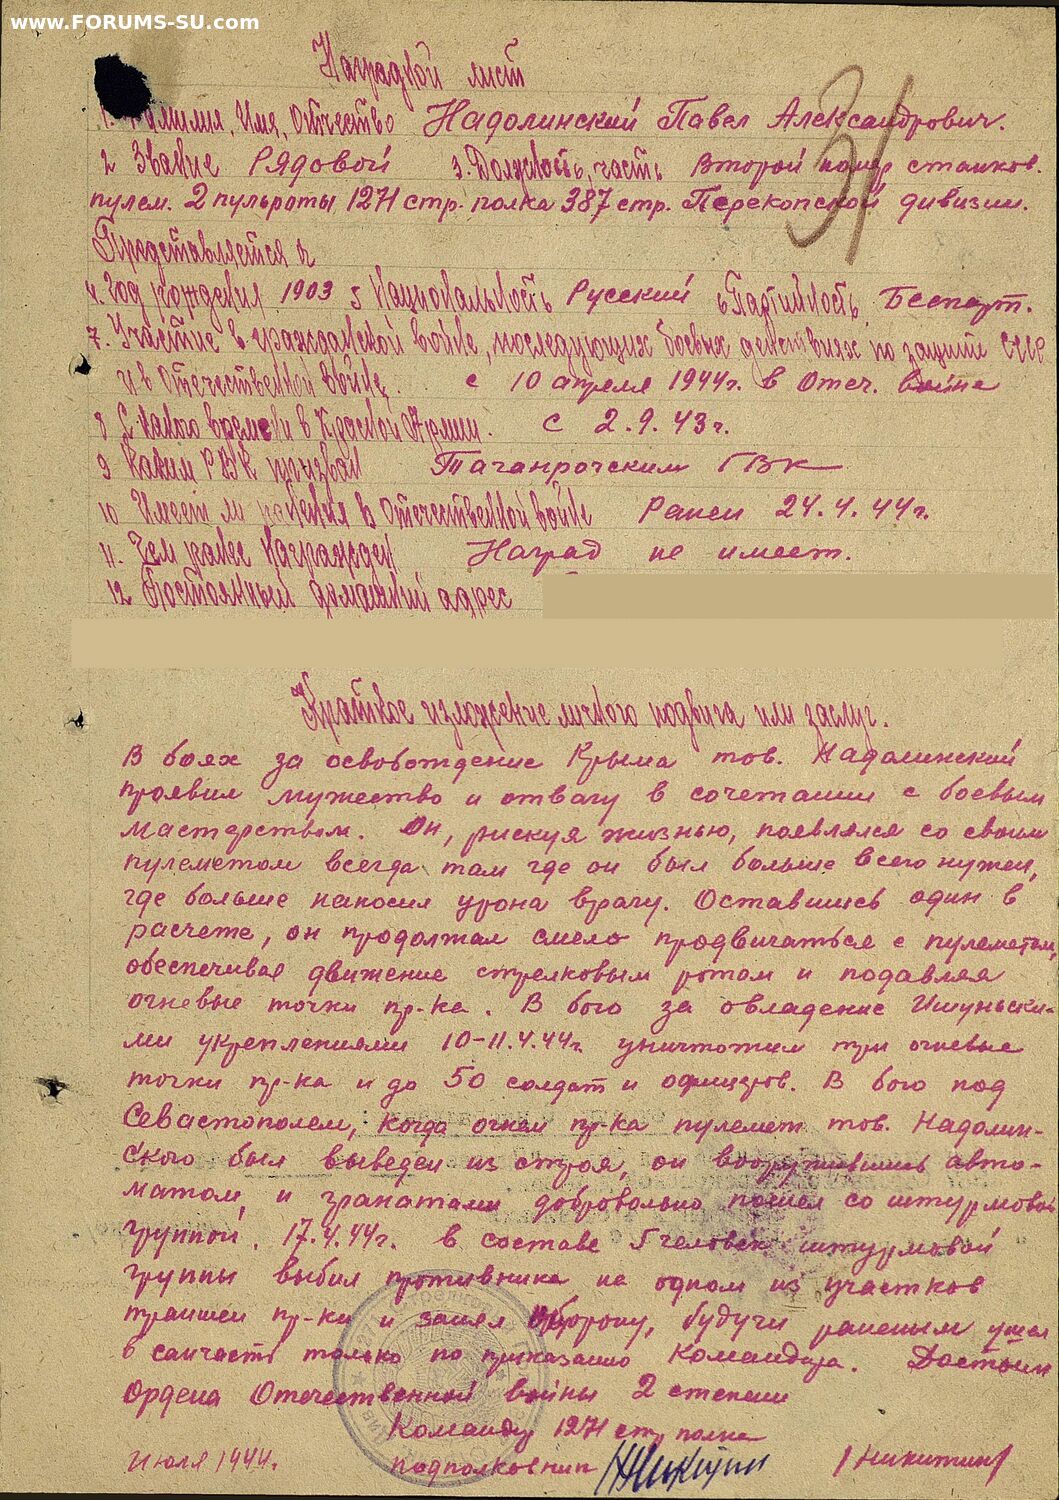 www.FORUMS-SU.com
Наградной лист
31
1. Фамилия, Имя, Отчество Надолинский Павел Александрович.
2 Звание Рядовой 3. Должность, часть Второй номер станков.
пулем. 2 пульроты 1271 стр. полка 387 стр. Перекопской дивизии.
Представляется к
4. Год рождения 1903 5 Национальность Русский 6 Партийность Беспарт.
7. Участие в гражданской войне, последующих боевых действиях по защите СССР
и в Отечественной войне. с 10 апреля 1944г. в Отеч. войне
8 С какого времени в Красной Армии. с 2.9.43г.
9 Каким РВК призван Таганрогским ГВК
10 Имеет ли ранения в Отечественной войне Ранен 24.4.44г.
11. Чем ранее награжден Наград не имеет.
12 Постоянный домашний адрес
Краткое изложение личного подвига или заслуг.
В боях за освобождение Крыма тов. Надолинский
проявил мужество и отвагу в сочетании с боевым
мастерством. Он, рискуя жизнью, появлялся со своим
пулеметом всегда там где он был больше всего нужен,
где больше наносил урона врагу. Оставшись один в
расчете, он продолжал смело продвигаться с пулеметом,
обеспечивая движение стрелковым ротам и подавляя
огневые точки пр-ка. В бою за овладение Ишуньски-
ми укреплениями 10-11.4.44г. уничтожил три огневые
точки пр-ка и до 50 солдат и офицеров. В бою под
Севастополем, когда огнем пр-ка пулемет тов. Надолин-
ского был выведен из строя, он вооружившись авто-
матом, и гранатами добровольно пошел со штурмовой
группой. 17.4.44г. в составе 5 человек штурмовой
группы выбил противника на одном из участков
траншеи пр-ка и занял оборону, будучи раненым ушел
в санчасть только по приказанию Командира. Достоин
Ордена Отечественной войны 2 степени
Командир 1271 стр полка
Июля 1944г. подполковник Никитин /Никитин/